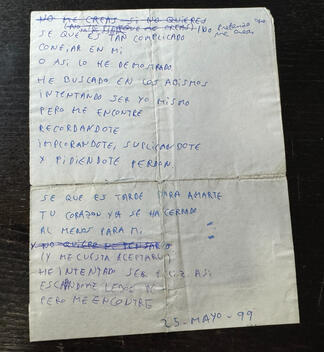 NO ME CREAS SI NO QUIERES
(NO TE ME CREAS) / NO
SE QUE ES TAN COMPLICADO
CONFIAR EN MI
O ASI LO HE DEMOSTRADO
HE BUSCADO EN LOS ABISMOS
INTENTANDO SER YO MISMO
PERO ME ENCONTRE
RECORDANDOTE
IMPLORANDOTE, SUPLICANDOTE
Y PIDIENDOTE PERDON.
SE QUE ES TARDE PARA AMARTE
TU CORAZON YA SE HA CERRADO
AL MENOS PARA MI
Y NO QUIERO NI PENSARLO
(Y ME CUESTA ACEPTARLO)
HE INTENTADO SER FELIZ ASI
LEJOS DE
PERO ME ENCONTRE
25-MAYO-99